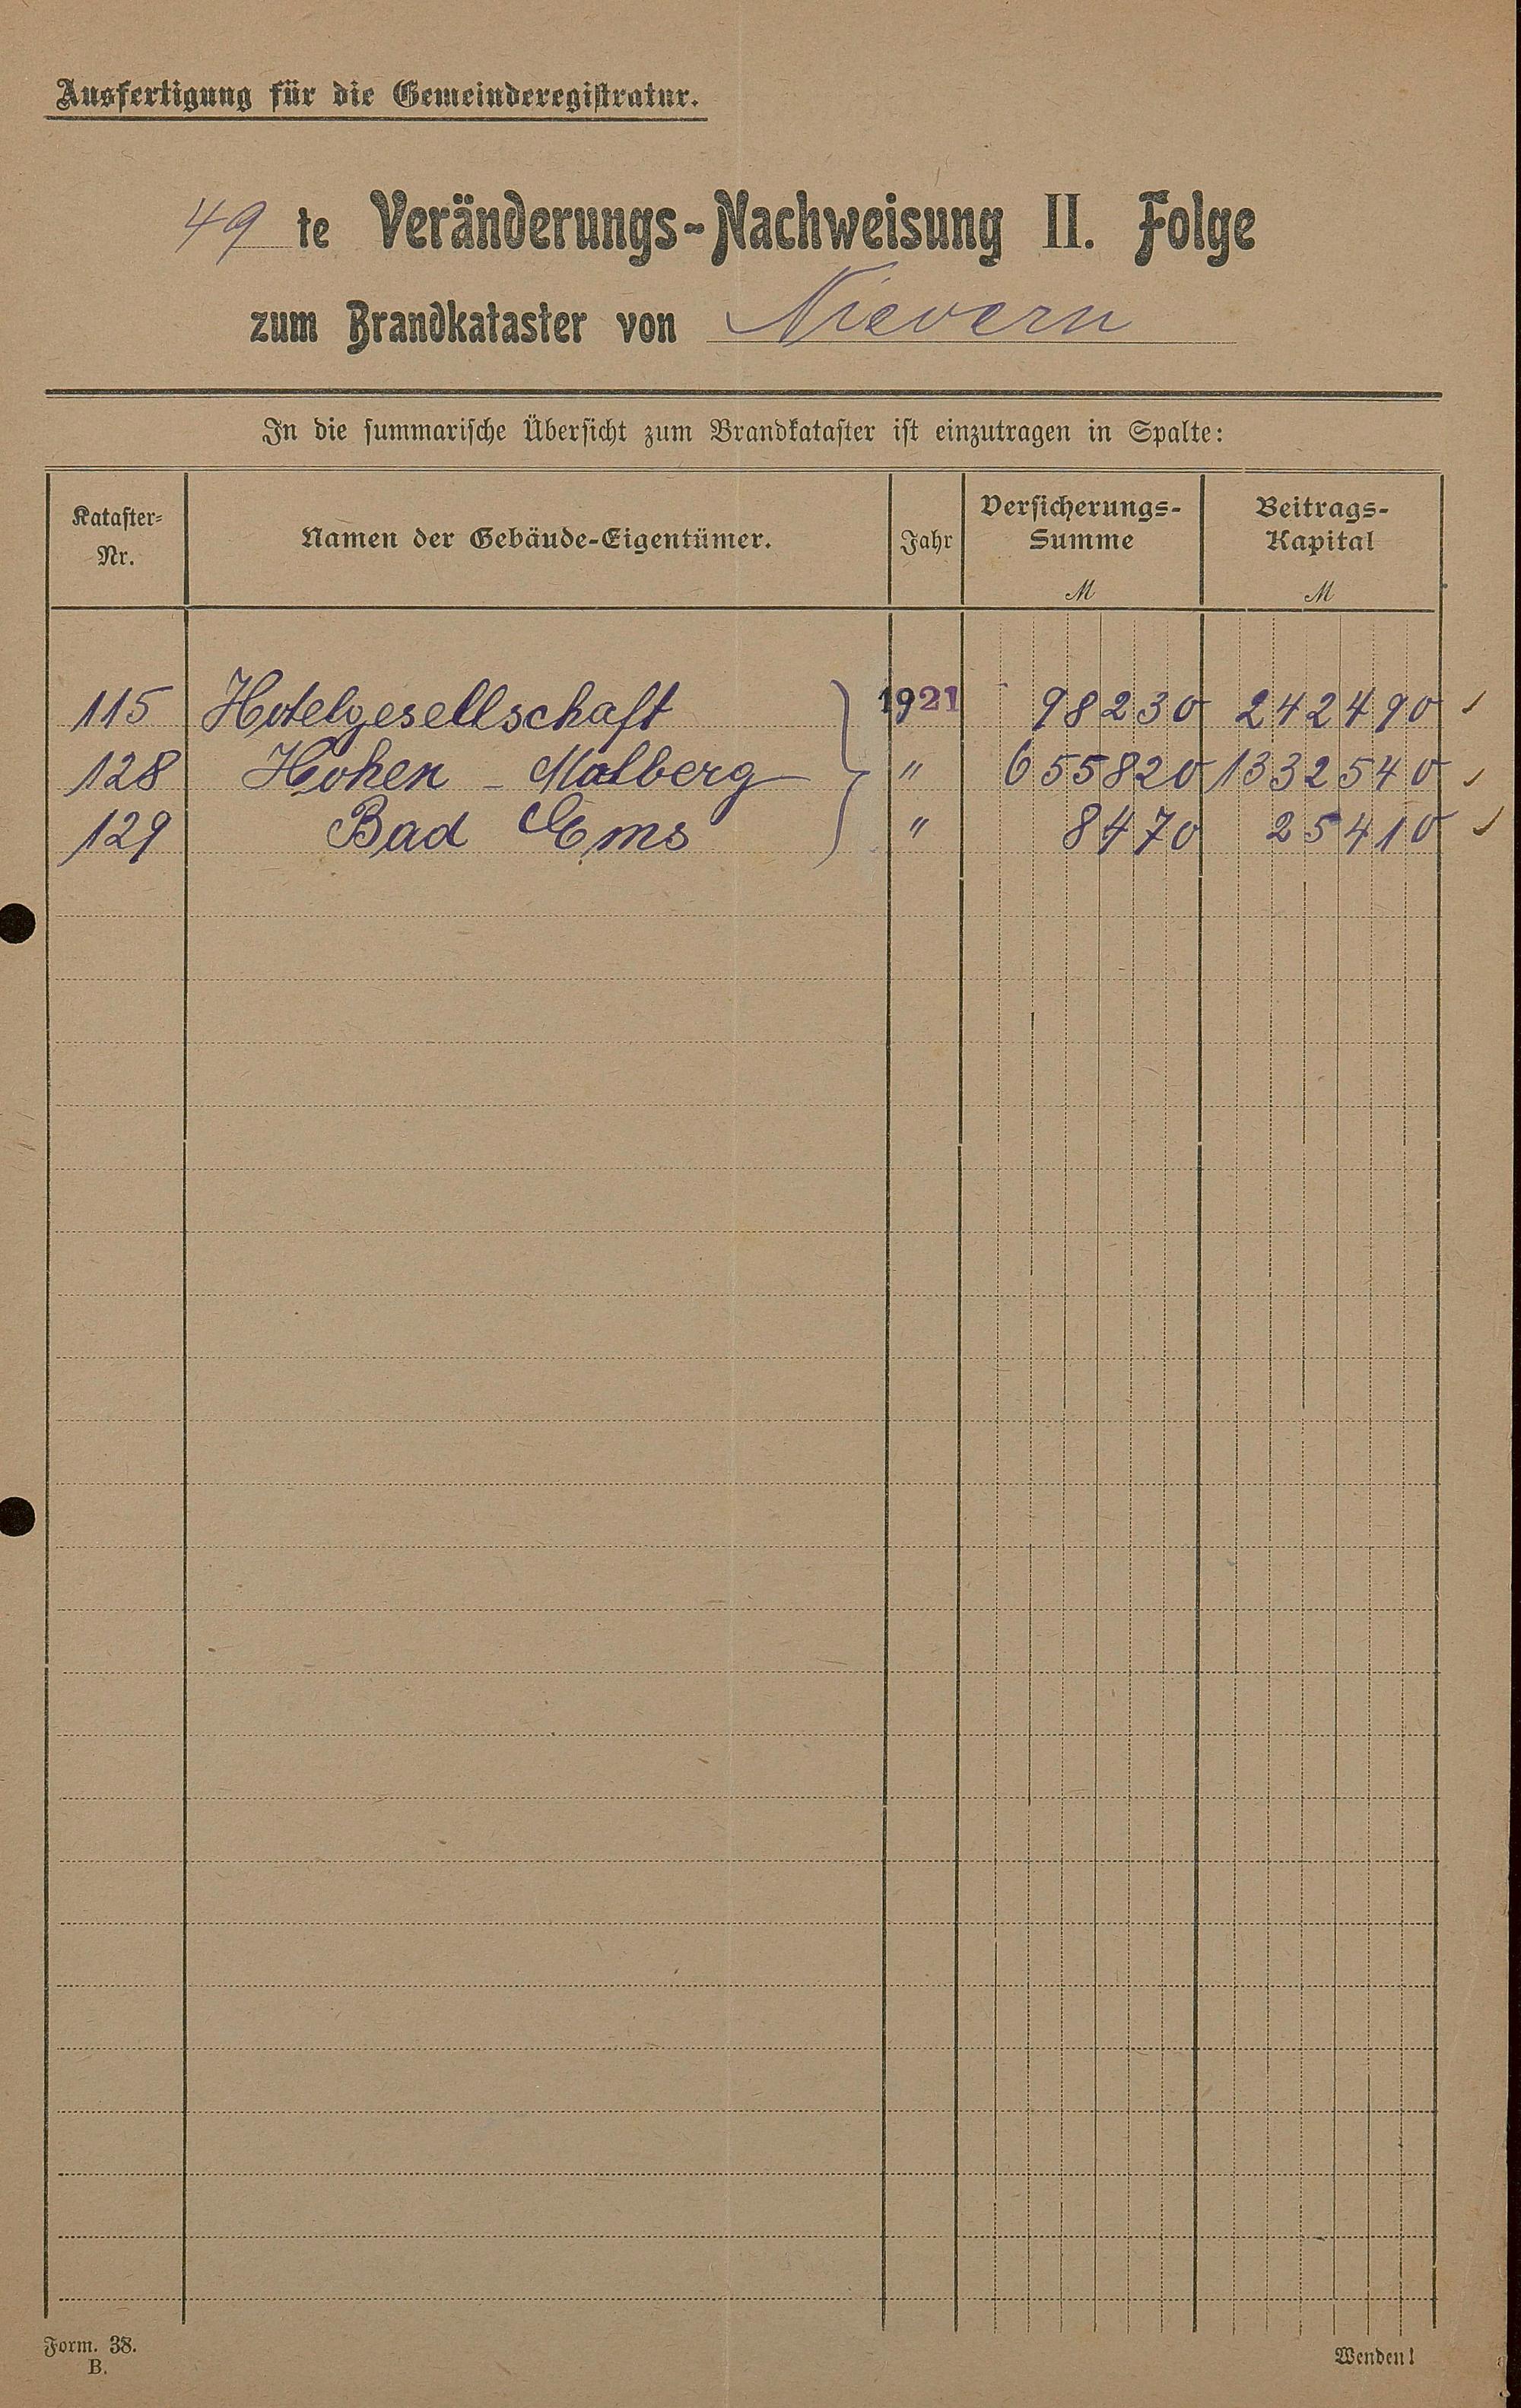 Ausfertigung für die Gemeinderegistratur.
49 te Veränderungs-Nachweisung II. Folge
zum Brandkataster von Nievern
In die summarische Übersicht zum Brandkataster ist einzutragen in Spalte:
Kataster-
Nr.
Namen der Gebäude-Eigentümer.
Jahr
Versicherungs-
Summe
M
Beitrags-
Kapital
M
115 Hotelgesellschaft 1921 98230 242490
128 Hohen-Malberg " 655820 1332540
129 Bad Ems " 8470 25410
Form. 38.
B.
Wenden!